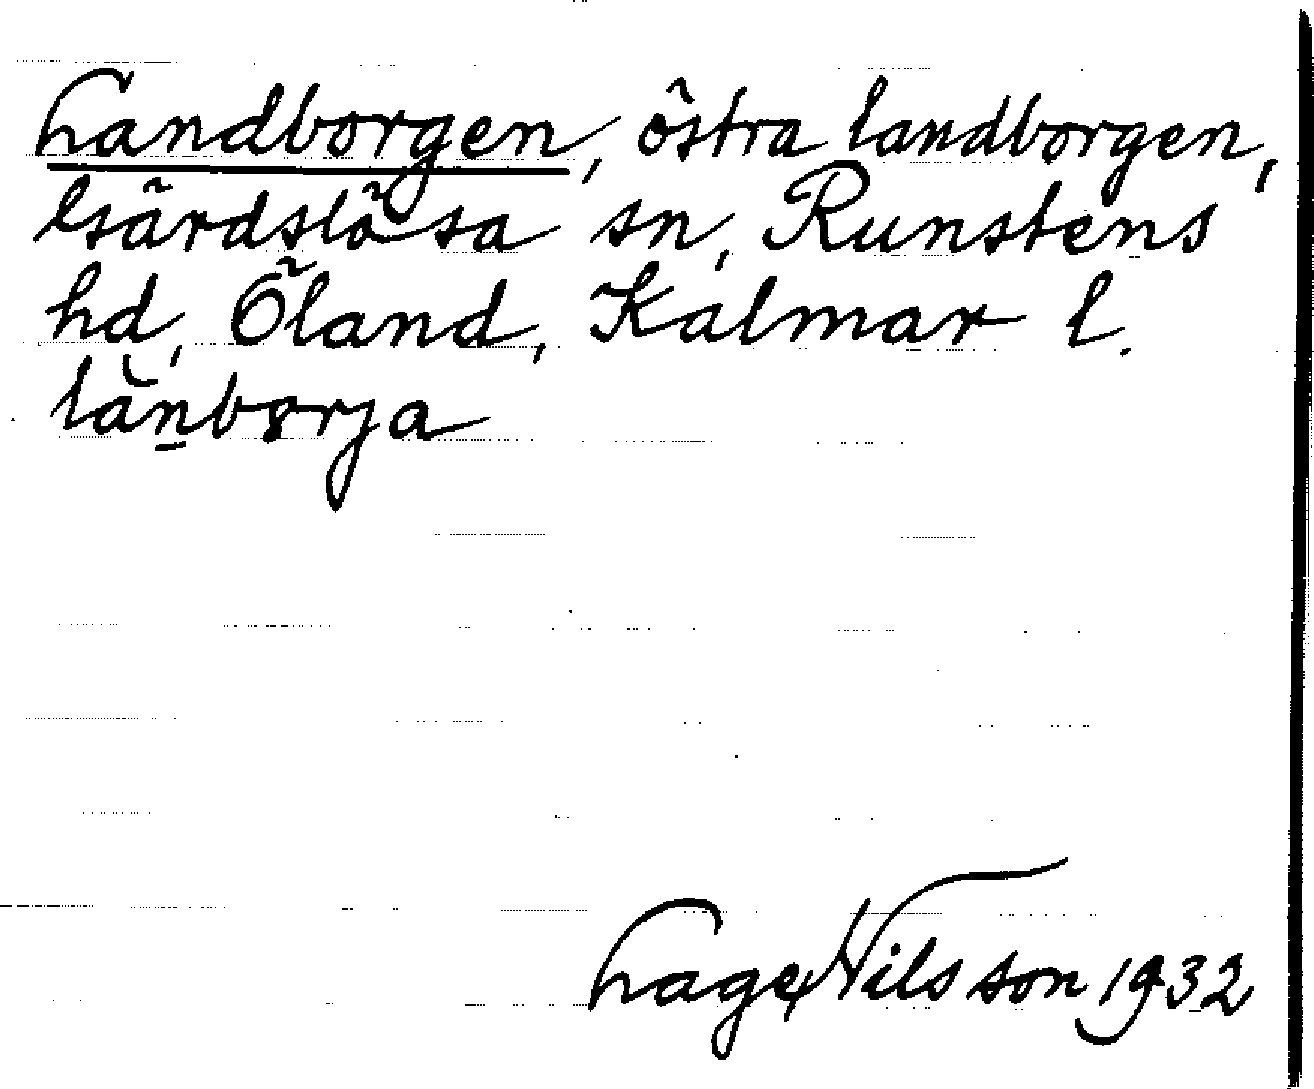 Landborgen, östra landborgen,
Gärdslösa sn, Runstens
hd, Öland, Kalmar l.
lănbɞrja
Lage Nilsson 1932